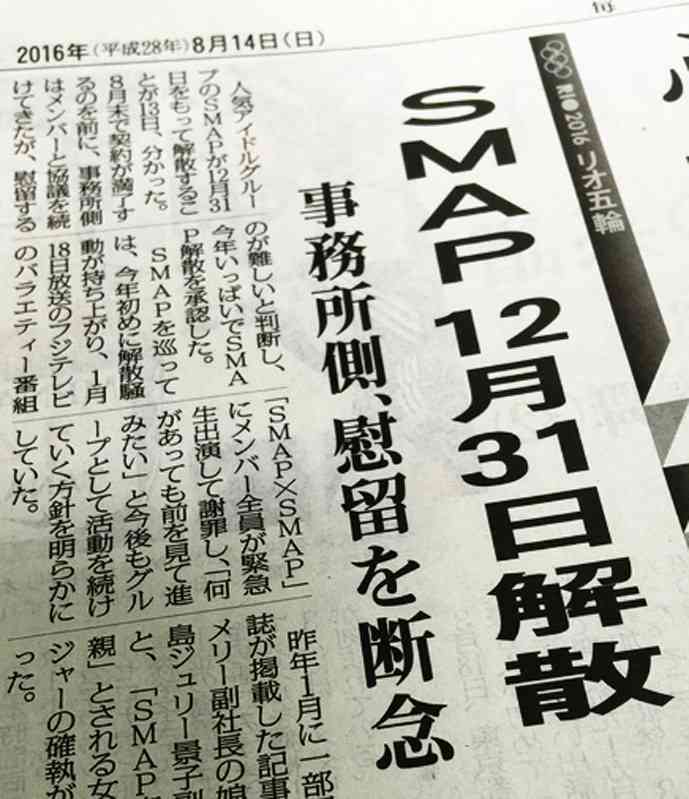 2016年(平成28年)8月14日(日)
RIO 2016 リオ五輪
SMAP 12月31日解散
事務所側、慰留を断念
人気アイドルグルー
プのSMAPが12月31
日をもって解散するこ
とが13日、分かった。
8月末で契約が満了す
るのを前に、事務所側
はメンバーと協議を続
けてきたが、慰留する
のが難しいと判断し、
今年いっぱいでSMA
P解散を承認した。
SMAPを巡って
は、今年初めに解散騒
動が持ち上がり、1月
18日放送のフジテレビ
のバラエティー番組
「SMAP×SMAP」
にメンバー全員が緊急
生出演して謝罪し、「何
があっても前を見て進
みたい」と今後もグル
ープとして活動を続け
ていく方針を明らかに
していた。
昨年1月に一部
誌が掲載した記事
メリー副社長の娘
島ジュリー景子副
と、「SMAP
親」とされる女
ジャーの確執が
った。